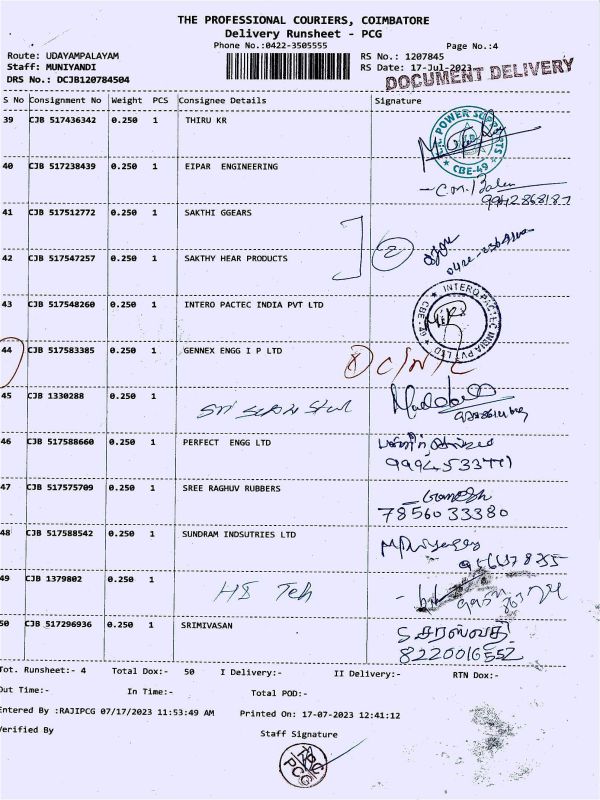 THE PROFESSIONAL COURIERS, COIMBATORE
Delivery Runsheet - PCG
Phone No.:0422-3505555 Page No.:4
Route: UDAYAMPALAYAM RS No.: 1207845
Staff: MUNIYANDI RS Date: 17-Jul-2023
DRS No.: DCJB120784504 DOCUMENT DELIVERY
S No Consignment No Weight PCS Consignee Details Signature
39 CJB 517436342 0.250 1 THIRU KR
POWER SUPPORTS CBE-49
40 CJB 517238439 0.250 1 EIPAR ENGINEERING
9942868187
41 CJB 517512772 0.250 1 SAKTHI GGEARS
2
42 CJB 517547257 0.250 1 SAKTHY HEAR PRODUCTS
43 CJB 517548260 0.250 1 INTERO PACTEC INDIA PVT LTD
INTERO PACTEC INDIA PVT LTD CBE-49
44 CJB 517583385 0.250 1 GENNEX ENGG I P LTD
45 CJB 1330288 0.250 1
46 CJB 517588660 0.250 1 PERFECT ENGG LTD
47 CJB 517575709 0.250 1 SREE RAGHUV RUBBERS
Ganesh
7856033380
48 CJB 517588542 0.250 1 SUNDRAM INDSUTRIES LTD
49 CJB 1379802 0.250 1
50 CJB 517296936 0.250 1 SRIMIVASAN
S சரஸ்வதி
8220016552
Tot. Runsheet:- 4 Total Dox:- 50 I Delivery:- II Delivery:- RTN Dox:-
Out Time:- In Time:- Total POD:-
Entered By :RAJIPCG 07/17/2023 11:53:49 AM Printed On: 17-07-2023 12:41:12
Verified By Staff Signature